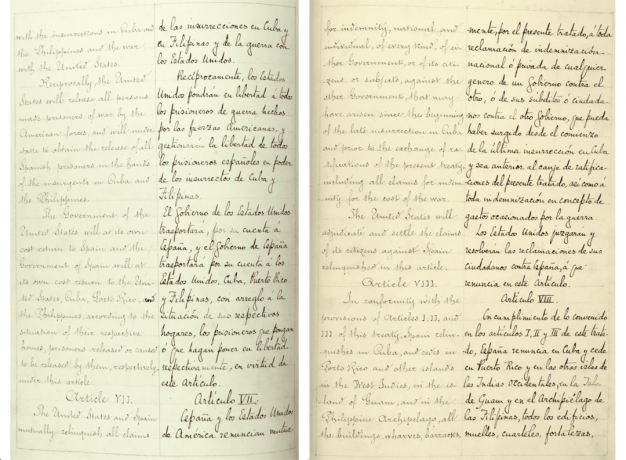 with the insurrections in Cuba and
the Philippines and the war
with the United States.
Reciprocally, the United
States will release all persons
made prisoners of war by the
American forces, and will under-
take to obtain the release of all
Spanish prisoners in the hands
of the insurgents in Cuba and
the Philippines.
The Government of the
United States will at its own
cost return to Spain and the
Government of Spain will at
its own cost return to the Uni-
ted States, Cuba, Porto Rico, and
the Philippines, according to the
situation of their respective
homes, prisoners released or caused
to be released by them, respectively,
under this article.
Article VII.
The United States and Spain
mutually relinquish all claims
de las insurrecciones en Cuba y
en Filipinas y de la guerra con
los Estados Unidos.
Recíprocamente, los Estados
Unidos pondrán en libertad á todos
los prisioneros de guerra hechos
por las fuerzas Americanas, y
gestionarán la libertad de todos
los prisioneros españoles en poder
de los insurrectos de Cuba y
Filipinas.
El Gobierno de los Estados Unidos
trasportará, por su cuenta á
España, y el Gobierno de España
trasportará por su cuenta á los
Estados Unidos, Cuba, Puerto Rico
y Filipinas, con arreglo á la
situación de sus respectivos
hogares, los prisioneros que pongan
ó que hagan poner en libertad
respectivamente, en virtud de
este Artículo.
Artículo VII.
España y los Estados Unidos
de América renuncian mutua-
for indemnity, national and
individual, of every kind, of ei-
ther Government, or of its citi-
zens or subjects, against the
other Government, that may
have arisen since the beginning
of the late insurrection in Cuba
and prior to the exchange of ra-
tifications of the present treaty,
including all claims for indem-
nity for the cost of the war.
The United States will
adjudicate and settle the claims
of its citizens against Spain
relinquished in this article.
Article VIII.
In conformity with the
provisions of Articles I, II, and
III of this treaty, Spain relin-
quishes in Cuba, and cedes in
Porto Rico and other islands
in the West Indies, in the is-
land of Guam, and in the
Philippine Archipelago, all
the buildings, wharves, barracks,
mente, por el presente tratado, á toda
reclamación de indemnización
nacional ó privada de cualquier
género de un Gobierno contra el
otro, ó de sus súbditos ó ciudada-
nos contra el otro Gobierno, que pueda
haber surgido desde el comienzo
de la última insurrección en Cuba
y sea anterior al canje de ratifica-
ciones del presente tratado, así como á
toda indemnización en concepto de
gastos ocasionados por la guerra.
Los Estados Unidos juzgarán y
resolverán las reclamaciones de sus
ciudadanos contra España, á que
renuncia en este Artículo.
Artículo VIII.
En cumplimiento de lo convenido
en los artículos I, II y III de este trata-
do, España renuncia en Cuba y cede
en Puerto Rico y en las otras islas de
las Indias Occidentales, en la Isla
de Guam y en el Archipiélago de
las Filipinas, todos los edificios,
muelles, cuarteles, fortalezas,